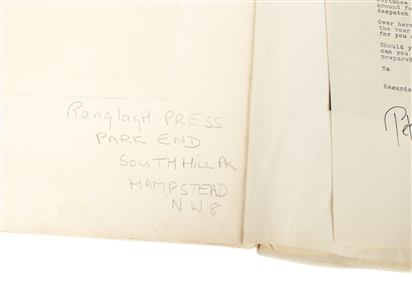 Ranglagh PRESS
PARK END
SOUTH HILL PK
HAMPSTEAD
N W 8.
around fo
despatch
Over here
the tour
for you a
Should y
can you
prepared
Ta
Regards
Pet